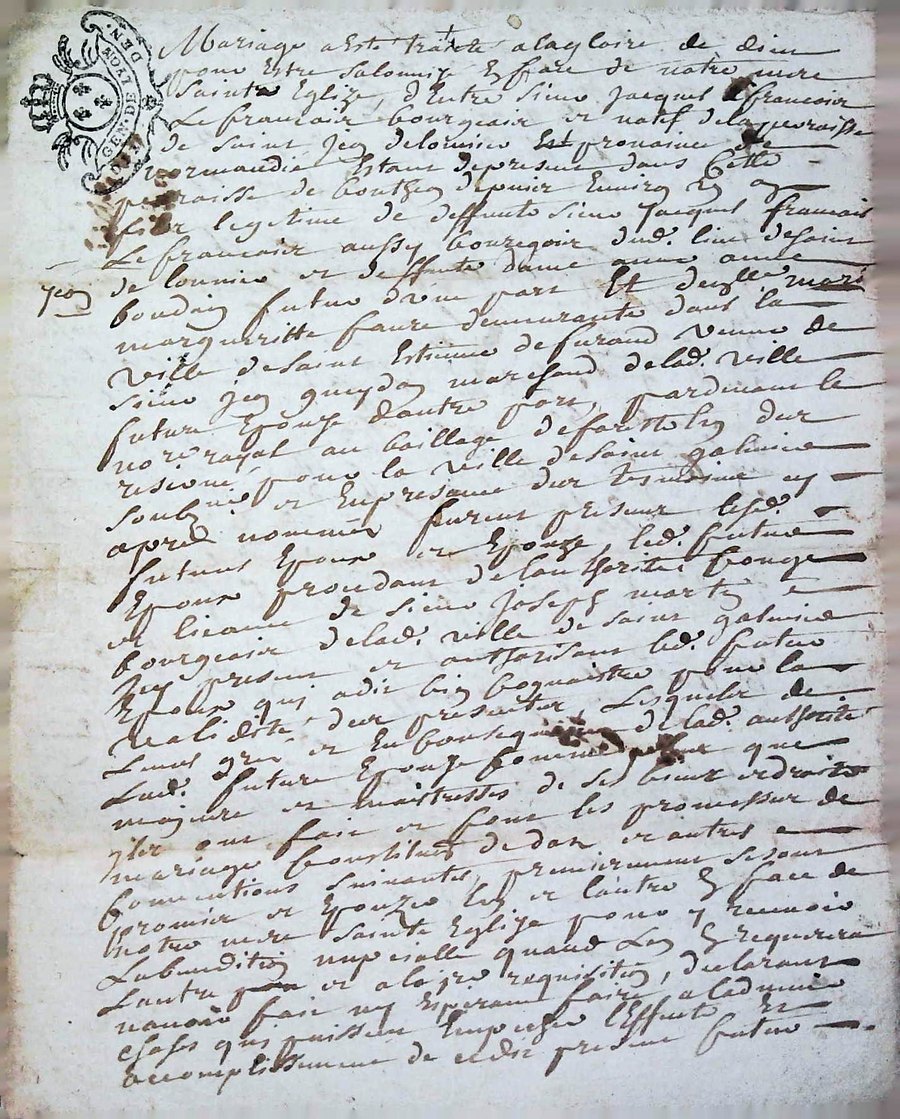 GEN. DE LYON
DEN.
Mariage a esté traitté a la gloire de dieu
pour Estre Salonnisé En face de notre mere
Sainte Eglize, d'Entre sieur Jacques francois
Le francois bourgeois et natif de la perroisse
de Saint Jean de lornier Est provaince de
normandie Estant de present dans Cette
perroisse de bouthen depuis Environ un an
fils legitime de deffunte sieur Jacques francois
Le francois aussy bourgois dud. lieu de saint
Jean
de lounier et deffunte dame anne anne
boudin futur d'une part Et de elle marie
margueritte faure demeurante dans la
ville de saint Estienne de furand veuve de
sieur Jean gueydon marchand de lad. ville
future Epouze dautre part, pardevant le
nore royal au baillage de forest
resigné, pour la ville de saint galmier
soubz.né et En presence des tesmoins cy
apres nommés furent present lesd.
futurs Epoux et Epouze, led. futur
Epoux procedant de lauthorité, Conge
et licence de sieur Joseph martin
bourgeois de lad. ville de saint galmier
icy present et authorisant led. futur
Epoux qui a dit bien Cognaistre pour la
validité des presentes, Lesquels de
Leurs gré et En Consequence de lad. authorité
Lad. future Epouze Comme que
majeure et maistresses de ses bieux et droits
ont fait et font les promesses de
mariage Constitutions de dot et autres
Conventions suivantes, premierement se sont
promis et Epouzer Un et lautre En face de
notre mere sainte Eglize pour y recevoir
La benediction nupcialle quand Lun En requerera
Lautre et a la premiere requisition, declarant
navoir fait ny Esperant faire a ladvenir
choses qui puissent Empecher l'Effente Et
accomplissement de cedit present futur